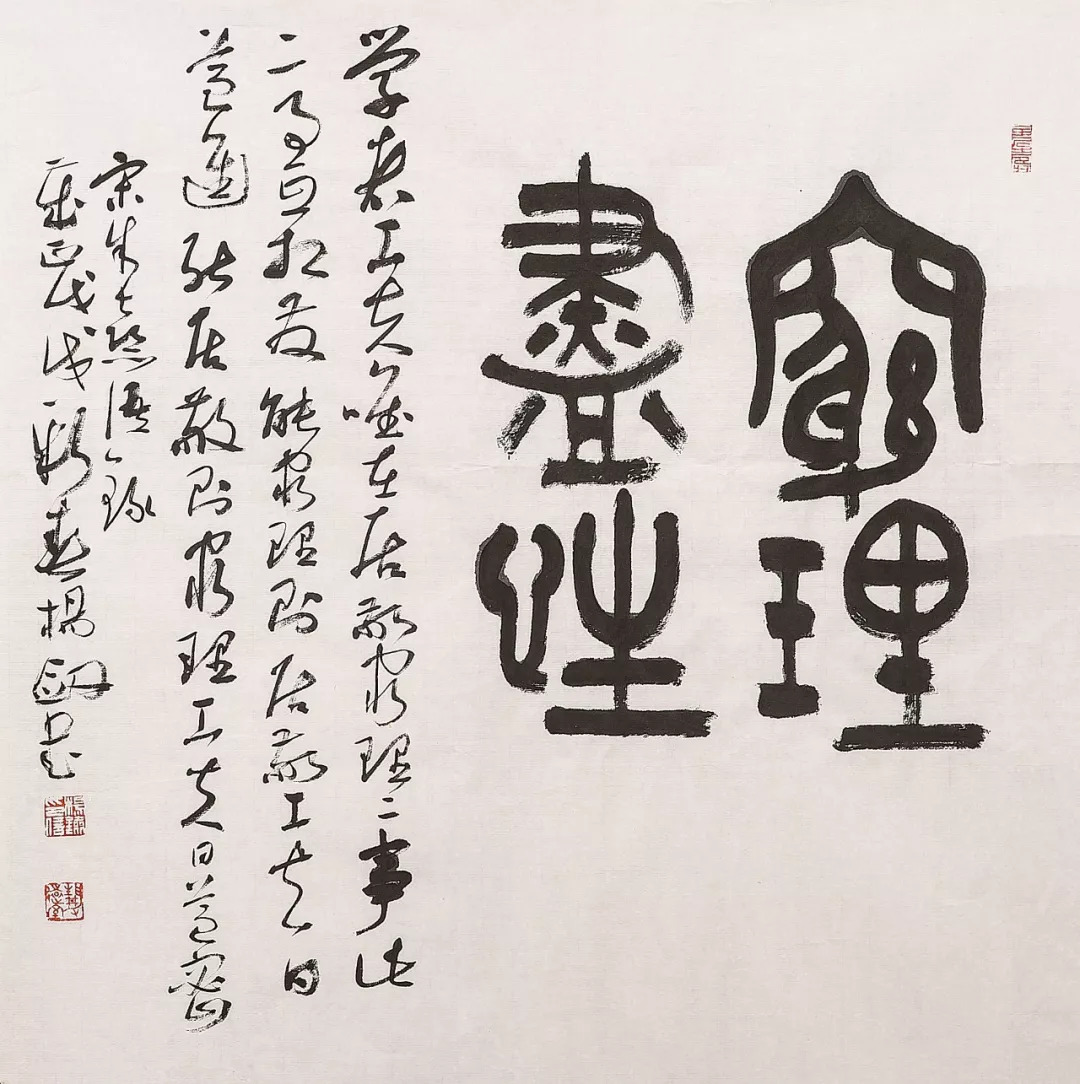 窮理
盡性
学者工夫唯在居敬窮理二事此
二事互相发能窮理則居敬工夫日
益進能居敬則窮理工夫日益密
宋朱熹語錄
戊戌新春